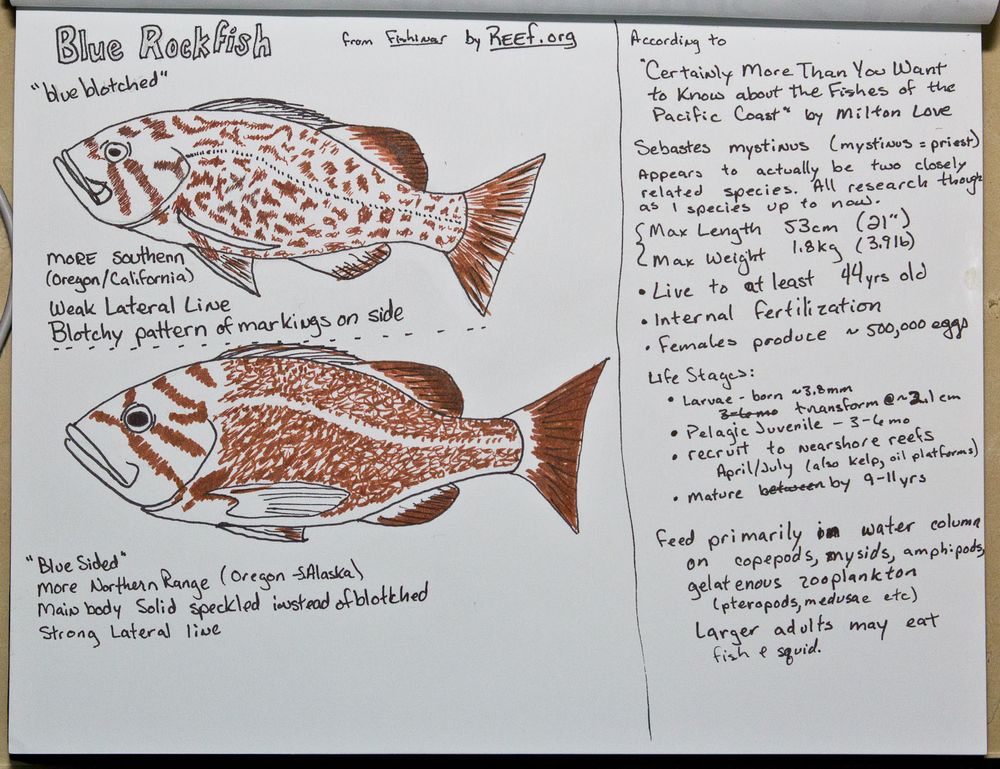 Blue Rockfish
from Fishinar by REEF.org
"blue blotched"
more southern
(Oregon/California)
Weak Lateral Line
Blotchy pattern of markings on side
"Blue Sided"
more Northern Range (Oregon - S. Alaska)
Main body Solid speckled instead of blotched
Strong Lateral line
According to
"Certainly More Than You Want
to Know about the Fishes of the
Pacific Coast" by Milton Love
Sebastes mystinus (mystinus = priest)
Appears to actually be two closely
related species. All research though
as 1 species up to now.
Max Length 53cm (21")
Max Weight 1.8kg (3.9lb)
• Live to at least 44yrs old
• Internal fertilization
• Females produce ~ 500,000 eggs
Life Stages:
• Larvae - born ~3.8mm
3-6 mo transform @ ~2.1 cm
• Pelagic Juvenile - 3-6 mo
• recruit to nearshore reefs
April/July (also kelp, oil platforms)
• Mature between by 9-11yrs
Feed primarily in water column
on copepods, mysids, amphipods,
gelatenous zooplankton
(pteropods, medusae etc)
Larger adults may eat
fish & squid.